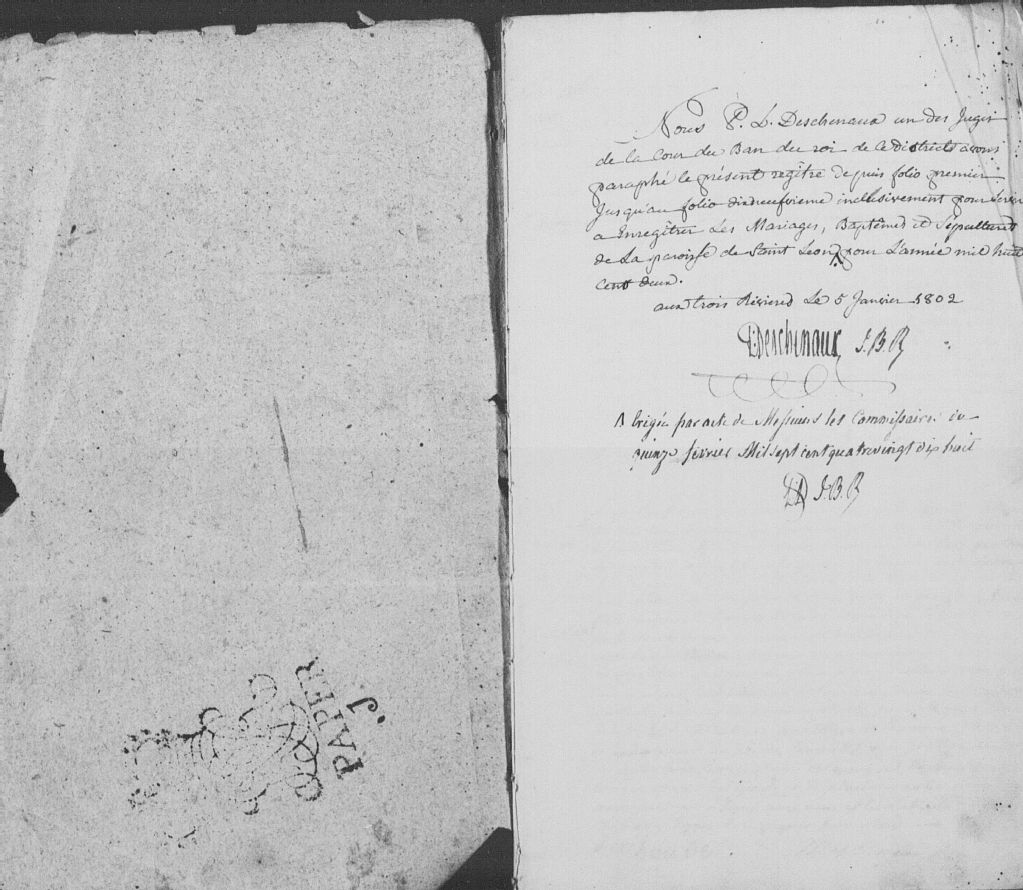 PAPER
J
Nous P. L. Deschenaux un des Juges
de la Cour du Ban du roi de ce districts avons
paraphé le présent regitre depuis folio premier
Jusqu'au folio dixneufvieme inclusivement pour Servir
a Enregitrer Les Mariages, Baptêmes et Sépultures
de La paroisse de Saint Leon pour L'année mil huit
cent deux.
aux trois Rivieres Le 5 Janvier 1802
P: Deschenaux J. B. R
par acte de Messieurs les Commissaires du
quinze février Mil sept cent quatrevingt dix huit
J. B. R